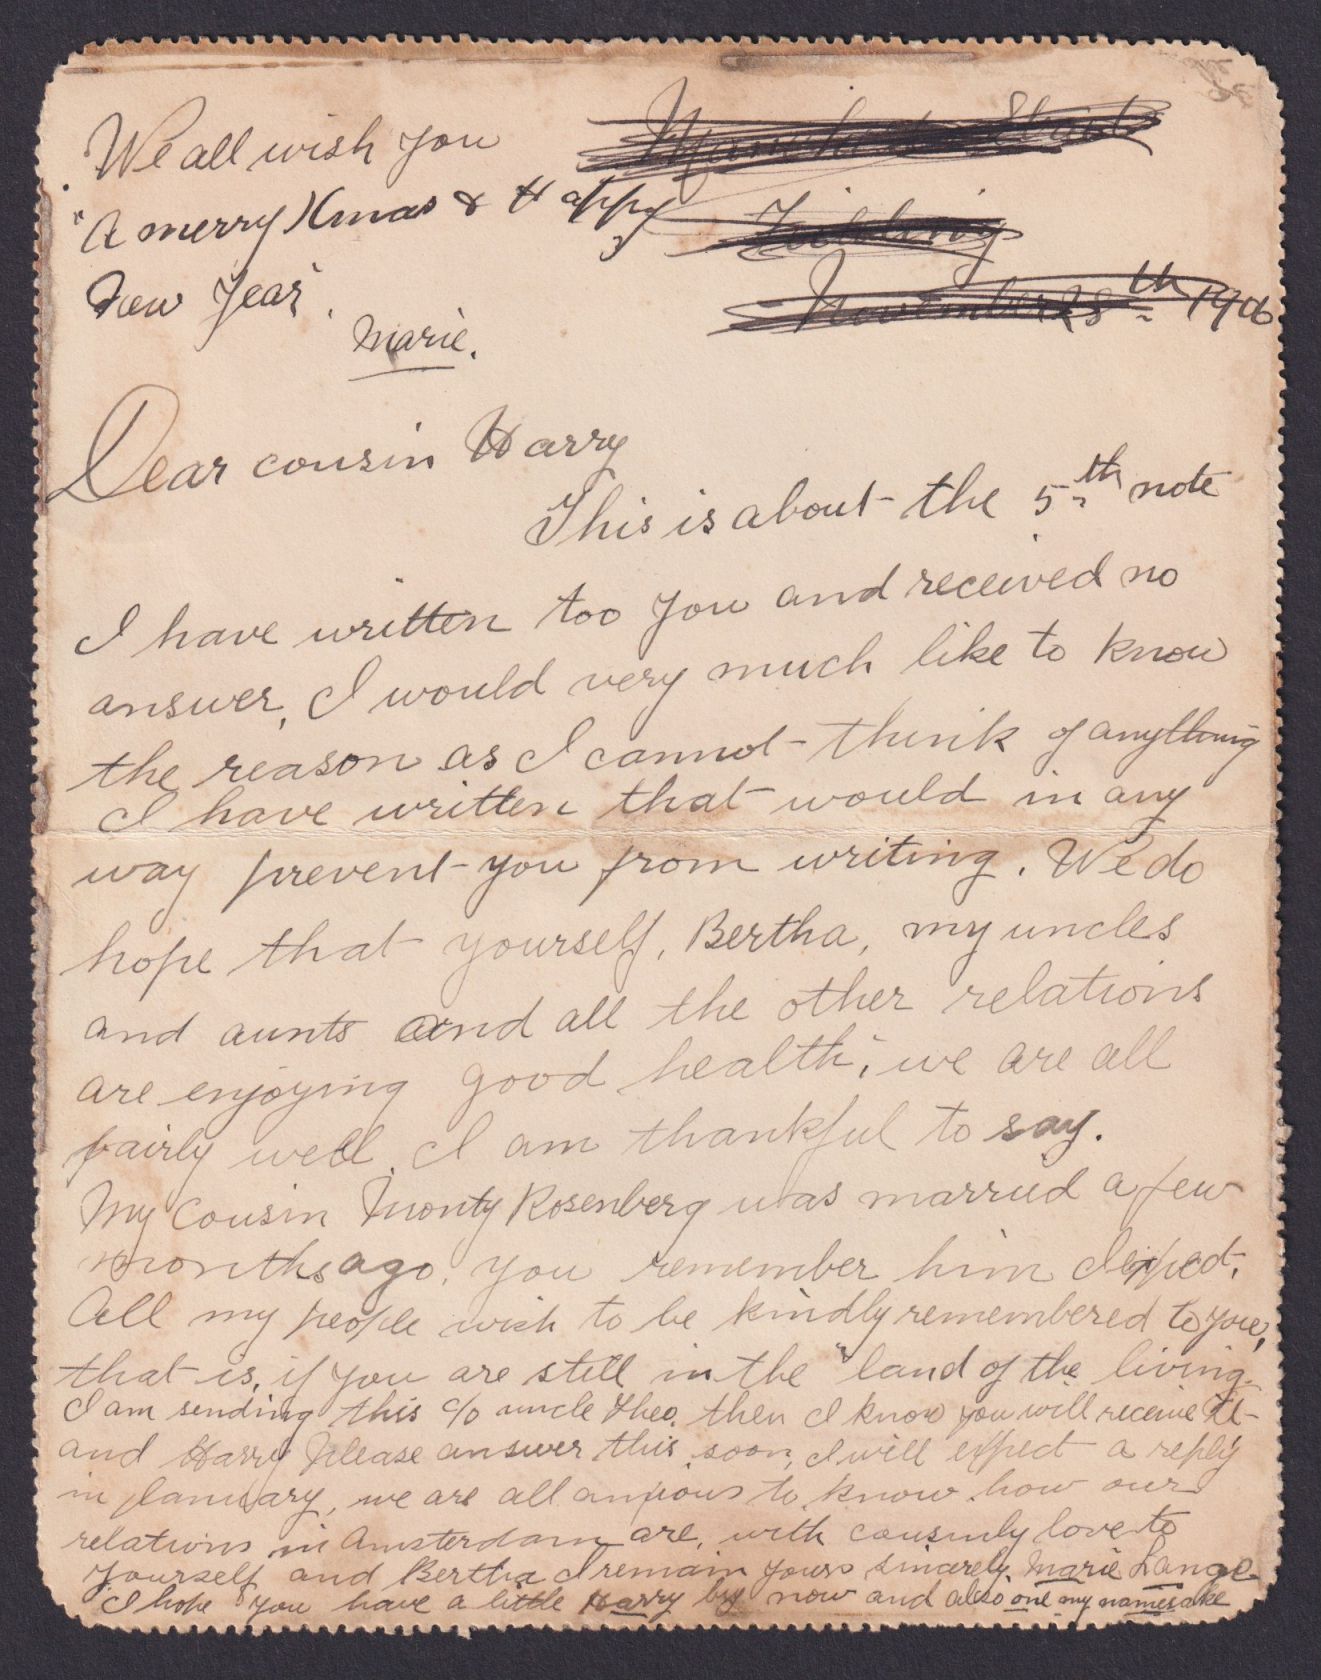 We all wish you
"A merry Xmas & Happy
New Year".
Marie.
Manchester Street
Feilding
November 28th 1906
Dear cousin Harry
This is about the 5th note
I have written too you and received no
answer, I would very much like to know
the reason as I cannot think of anything
I have written that would in any
way prevent you from writing. We do
hope that yourself, Bertha, my uncles
and aunts and all the other relations
are enjoying good health, we are all
fairly well I am thankful to say.
My cousin Monty Rosenberg was married a few
months ago, you remember him I expect,
All my people wish to be kindly remembered to you,
that is, if you are still in the "land of the living.
I am sending this c/o uncle Theo, then I know you will receive it
and Harry please answer this soon, I will expect a reply
in January, we are all anxious to know how our
relations in Amsterdam are, with cousinly love to
yourself and Bertha I remain yours sincerely Marie Lange
I hope you have a little Harry by now and also one my namesake